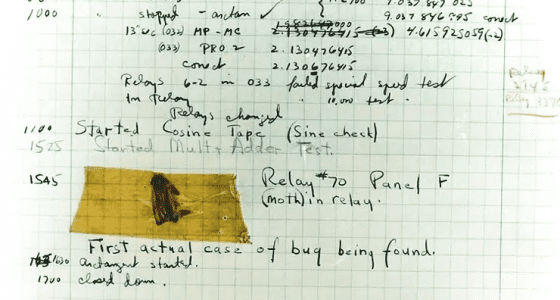 9.037 847 025
1000 stopped - arctan ✓ 9.037 846 995 correct
13"uc (032) MP-MC 2.130476415 (-3) 4.615925059(-2)
(033) PRO. 2 2.130476415
correct 2.130676415
Relays 6-2 in 033 failed special speed test
in Relay " 10,000 test.
Relays changed
1100 Started Cosine Tape (Sine check)
1525 Started Mult + Adder Test.
1545 Relay #70 Panel F
(moth) in relay.
First actual case of bug being found.
1630 antangent started.
1700 closed down.
Relay